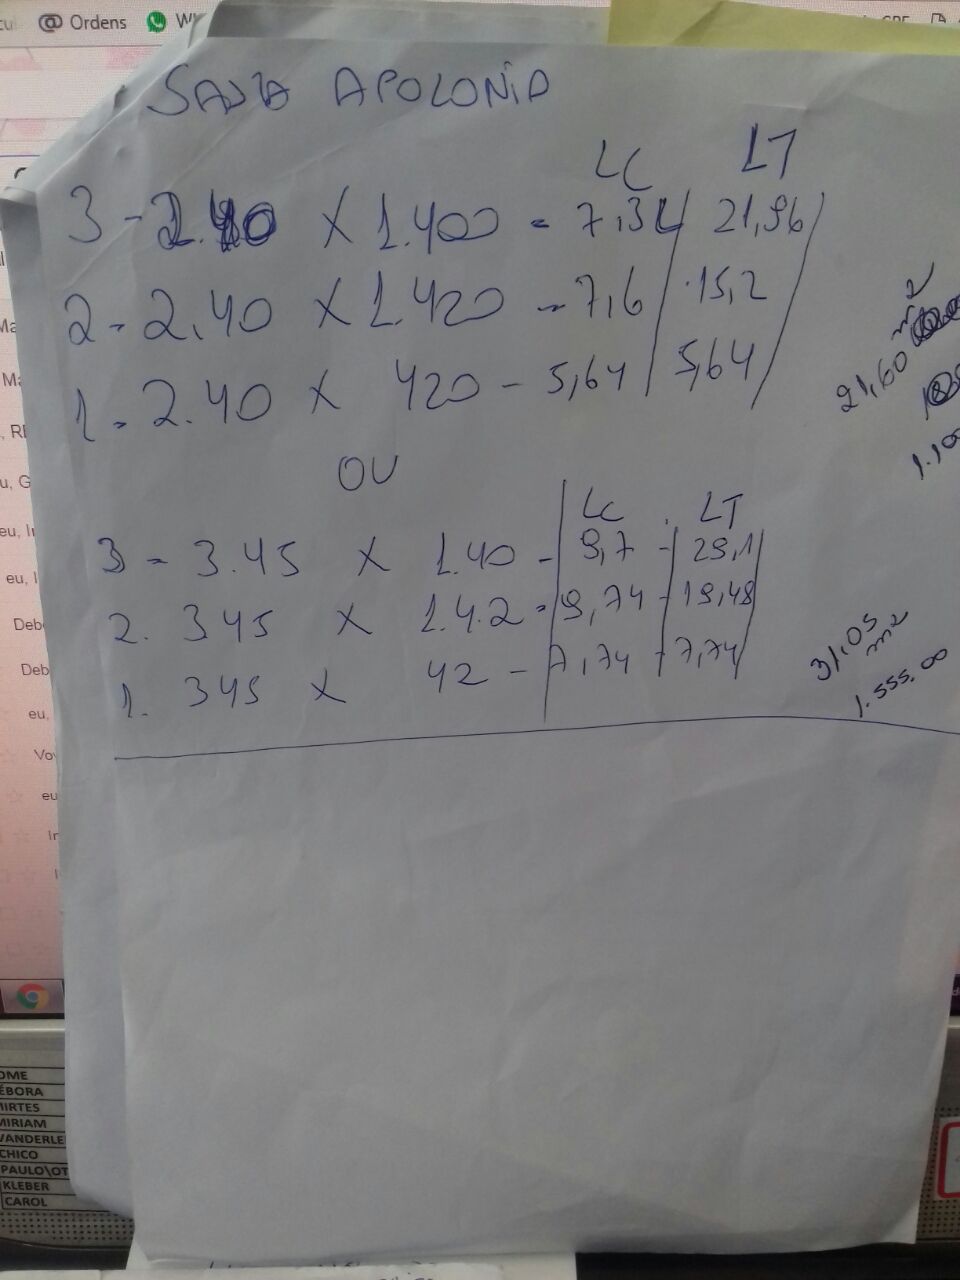 @ Ordens
SANTA APOLONIA
LC LT
3 - 2.40 X 1.400 = 7,32 / 21,96
2 - 2.40 X 1.420 - 7,6 / 15,2
1 - 2.40 X 420 - 5,64 / 5,64
21,60 m2
1.10
OU
LC LT
3 - 3.45 X 1.40 - 9,7 - 29,1
2. 345 X 1.42 = 9,74 - 19,48
1. 345 X 42 - 7,74 - 7,74
31,05 m2
1.555.00
eu, G
eu, I
Deb
Deb
eu,
Vo
eu
OME
ÉBORA
MIRTES
MIRIAM
VANDERLE
CHICO
PAULO\OT
KLEBER
CAROL